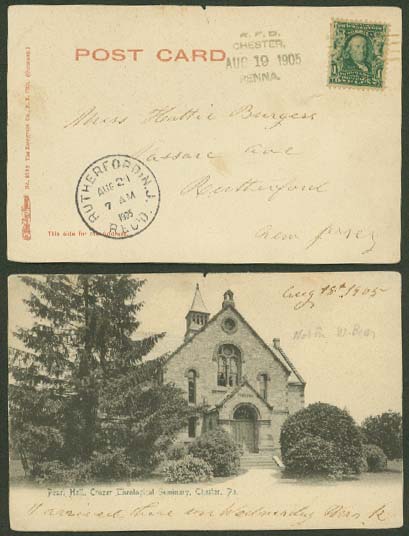 POST CARD
R. F. D.
CHESTER,
AUG 19 1905
PENNA.
Miss Hattie Burgess
Passaic Ave
Rutherford
New Jersey
RUTHERFORD, N.J.
AUG 21
7 AM
1905
REC'D.
This side for the address.
Aug 18th 1905
Pearl Hall, Crozer Theological Seminary, Chester, Pa.
I arrived here on Wednesday